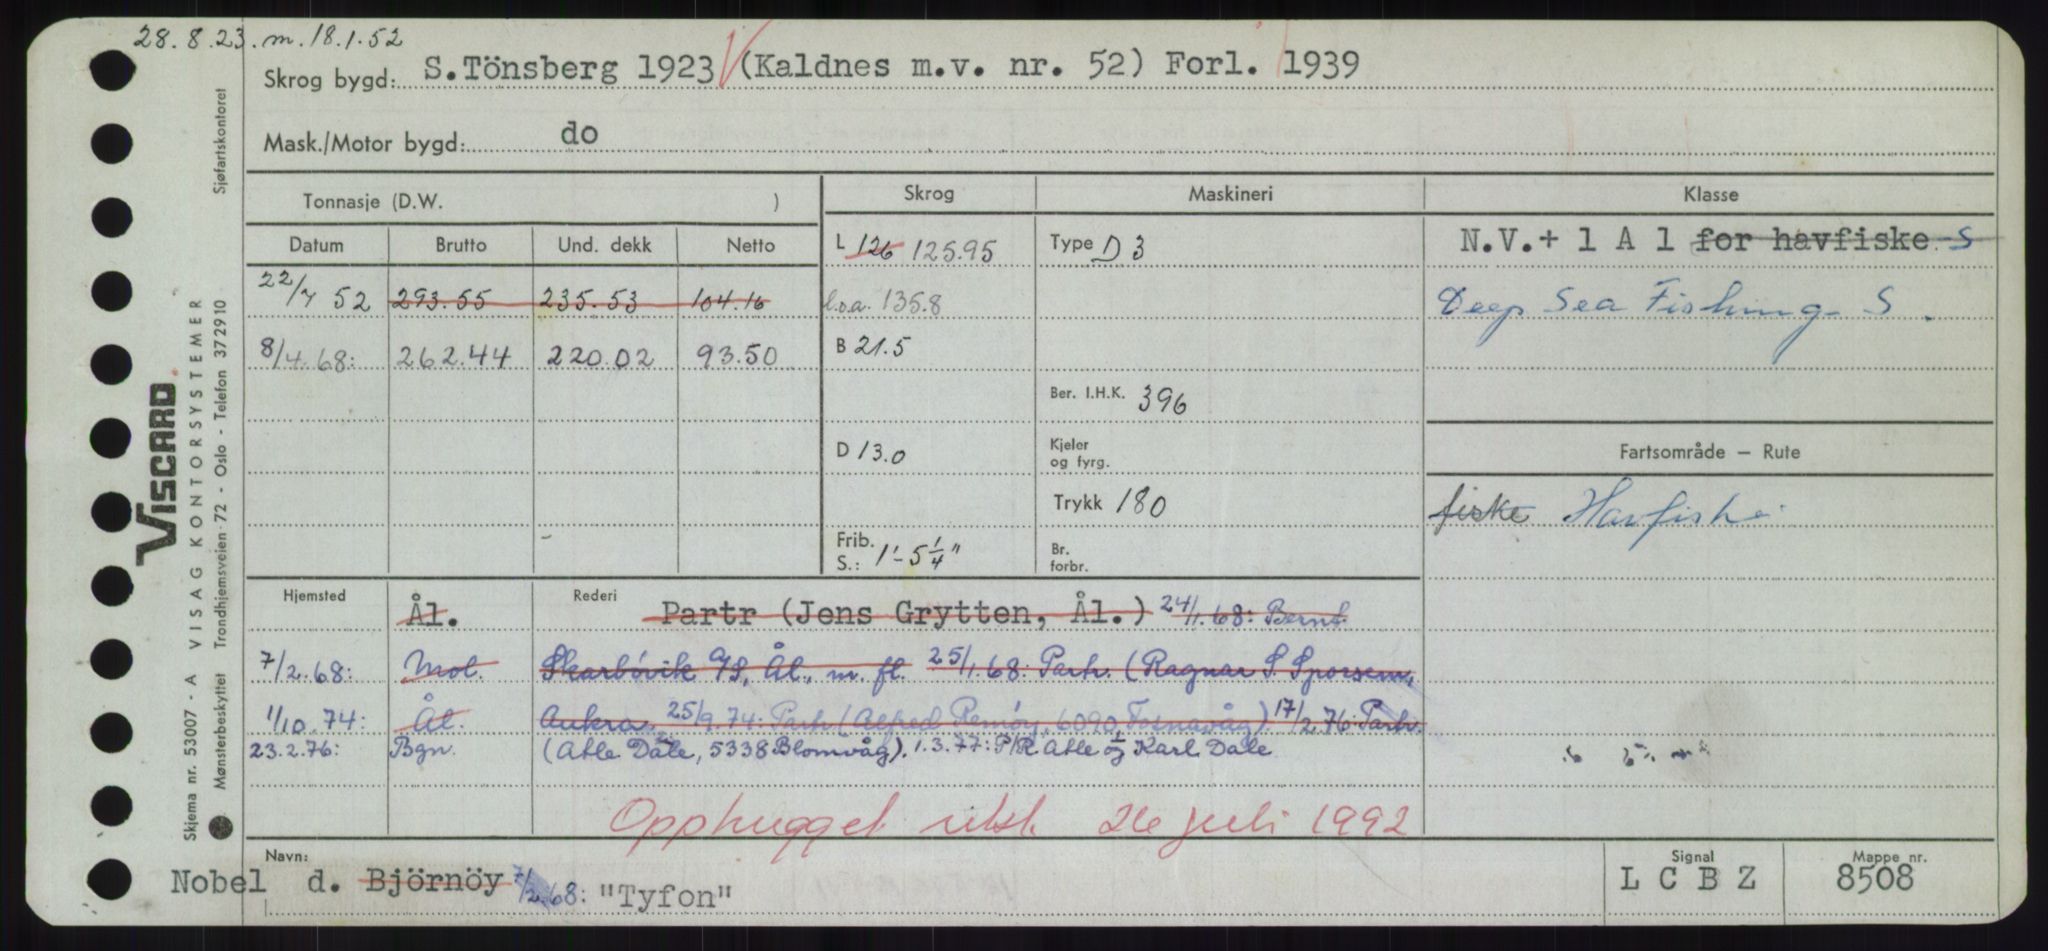 28.8.23. m. 18.1.52
Skrog bygd: S.Tönsberg 1923 (Kaldnes m.v. nr. 52) Forl. 1939
Mask./Motor bygd: do
Tonnasje (D.W. )
Skrog
Maskineri
Klasse
Datum Brutto Und. dekk Netto
22/7 52 293.55 235.53 104.16
8/4.68: 262.44 220.02 93.50
L 126 125.95
l.o.a. 135.8
B 21.5
D 13.0
Frib.
S.: 1'-5 1/4"
Type D 3
Ber. I.H.K. 396
Kjeler
og fyrg.
Trykk 180
Br.
forbr.
N.V.+ 1 A 1 for havfiske -S
Deep Sea Fishing - S.
Fartsområde — Rute
fiske Havfiske
Hjemsted Ål. Rederi Partr (Jens Grytten, Ål.) 24/1.68: Bernt
7/2.68: Mol. Skarbövik A/S, Ål., m. fl. 25/1.68: Partr. (Ragnar S. Sporsem,
1/10.74: Ål. Aukra. 25/9.74: Partr (Alfred Remöy, 6090 Fosnavåg) 17/2.76: Partr.
23.2.76: Bgn. (Atle Dale, 5338 Blomvåg). 1.3.77: P/R Atle og Karl Dale
Opphugget utst. 26 juli 1992
Navn:
Nobel d. Björnöy 7/2.68: "Tyfon"
Signal
L C B Z
Mappe nr.
8508
Sjøfartskontoret
VISCARD
VISAG KONTORSYSTEMER
Trondhjemsveien 72 - Oslo - Telefon 372910
Skjema nr. 53007 - A
Mønsterbeskyttet